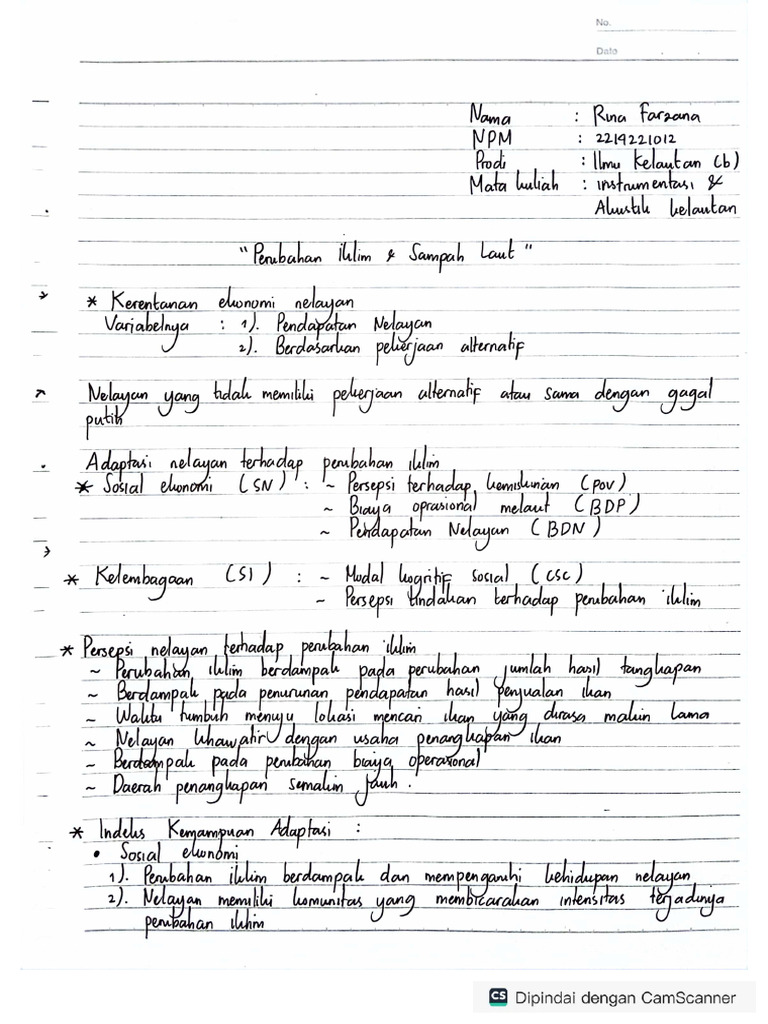 No.
Date
Nama : Rina Farzana
NPM : 2219221012
Prodi : Ilmu Kelautan (b)
Mata kuliah : instrumentasi &
Akustik kelautan
"Perubahan iklim & Sampah Laut"
* Kerentanan ekonomi nelayan
Variabelnya : 1). Pendapatan Nelayan
2). Berdasarkan pekerjaan alternatif
Nelayan yang tidak memiliki pekerjaan alternatif atau sama dengan gagal
putih
Adaptasi nelayan terhadap perubahan iklim
* Sosial ekonomi (SN) : ~ Persepsi terhadap kemiskinan (POV)
~ Biaya oprasional melaut (BDP)
~ Pendapatan Nelayan (BDN)
* Kelembagaan (SI) : ~ Modal kogritif sosial (CSC)
~ Persepsi tindakan terhadap perubahan iklim
* Persepsi nelayan terhadap perubahan iklim
~ Perubahan iklim berdampak pada perubahan jumlah hasil tangkapan
~ Berdampak pada penurunan pendapatan hasil penjualan ikan
~ Waktu tumbuh menuju lokasi mencari ikan yang dirasa makin lama
~ Nelayan khawatir dengan usaha penangkapan ikan
~ Berdampak pada perubahan biaya operasional
~ Daerah penangkapan semakin jauh.
* Indeks Kemampuan Adaptasi :
• Sosial ekonomi
1). Perubahan iklim berdampak dan mempengaruhi kehidupan nelayan
2). Nelayan memiliki komunitas yang membicarakan intensitas terjadinya
perubahan iklim
CS Dipindai dengan CamScanner